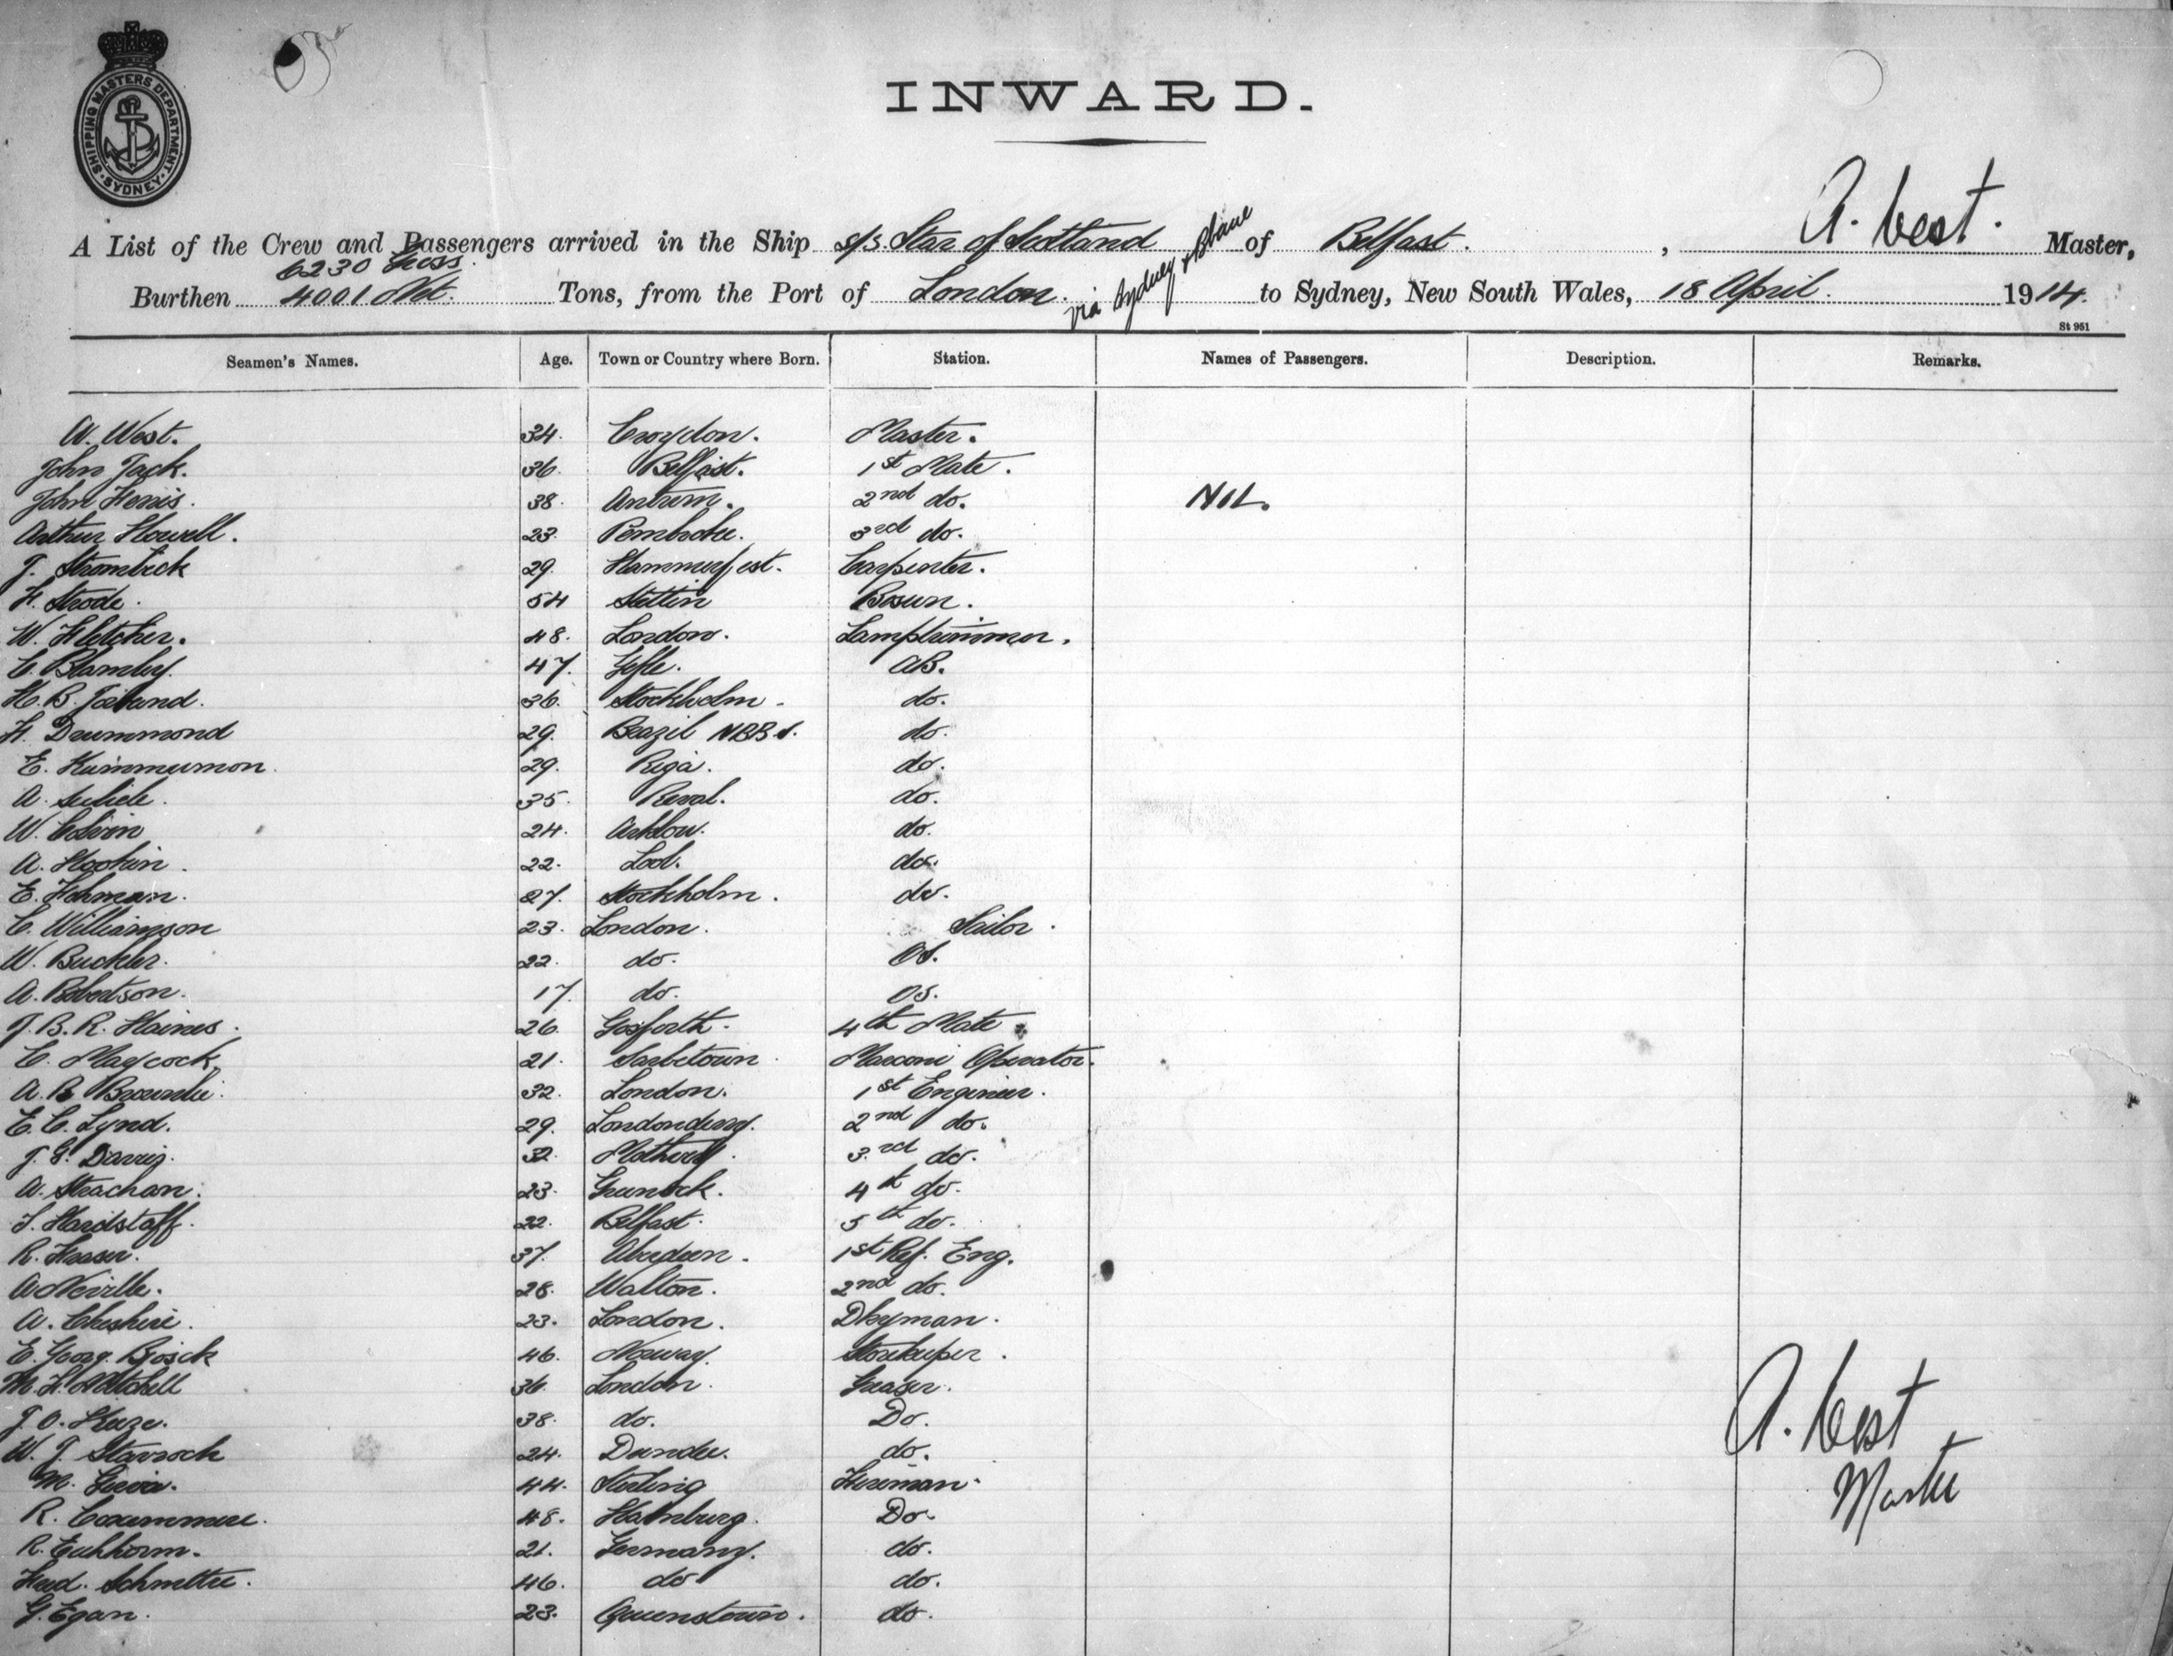 SHIPPING MASTERS DEPARTMENT. SYDNEY
INWARD.
A List of the Crew and Passengers arrived in the Ship s/s. Star of Scotland of Belfast. , A. West. Master,
6230 Gross.
Burthen 4001 Net. Tons, from the Port of London. via Sydney & to Sydney, New South Wales, 18 April. 1914.
St 951
Seamen's Names. Age. Town or Country where Born. Station. Names of Passengers. Description. Remarks.
A. West. 34. Croydon. Master.
John Jack. 36. Belfast. 1st Mate.
John Ferris. 38. Antrim. 2nd do. NIL.
Arthur Howell. 23. Pembroke. 3rd do.
J. Strombeck 29. Hammerfest. Carpenter.
H. Strode. 54 Stettin Bosun.
W. Fletcher. 48. London. Lamptrimmer.
C. Blomby. 47. Gefle. AB.
H. B. 36. Stockholm. do.
H. Drummond 29. Brazil NBBS. do.
E. 29. Riga. do.
A. 35. Reval. do.
W. 24. Arklow. do.
A. Hopkin. 22. Lpool. do.
E. Fohman. 27. Stockholm. do.
C. Williamson 23. London. Sailor.
W. Buckler. 22. do. OS.
A. Robertson. 17. do. OS.
J. B. R. Haines. 26. Gosforth. 4th Mate
C. Maycock. 21. Marconi Operator.
A. B. Brownlie. 32. London. 1st Engineer.
E. C. Lynd. 29. Londonderry. 2nd do.
J. G. Davis. 32. Motherwell. 3rd do.
A. Strachan. 23. Greenock. 4th do.
J. Hardstaff. 22. Belfast. 5th do.
R. Fraser. 37. Aberdeen. 1st Ref. Eng.
A. Neville. 28. Walton. 2nd do.
A. Cheshire. 23. London. Dkyman.
E. Georg. 46. Norway. Storekeeper.
M. H. Mitchell 36. London. Greaser.
J. O. 38. do. Do.
W. J. Starrock 24. Dundee. do.
M. 44. Sterling Fireman.
R. 48. Hamburg. Do.
R. Eichhorn. 21. Germany. do.
Fred. 46. do do.
G. Egan. 23. Queenstown. do.
A. West
Master